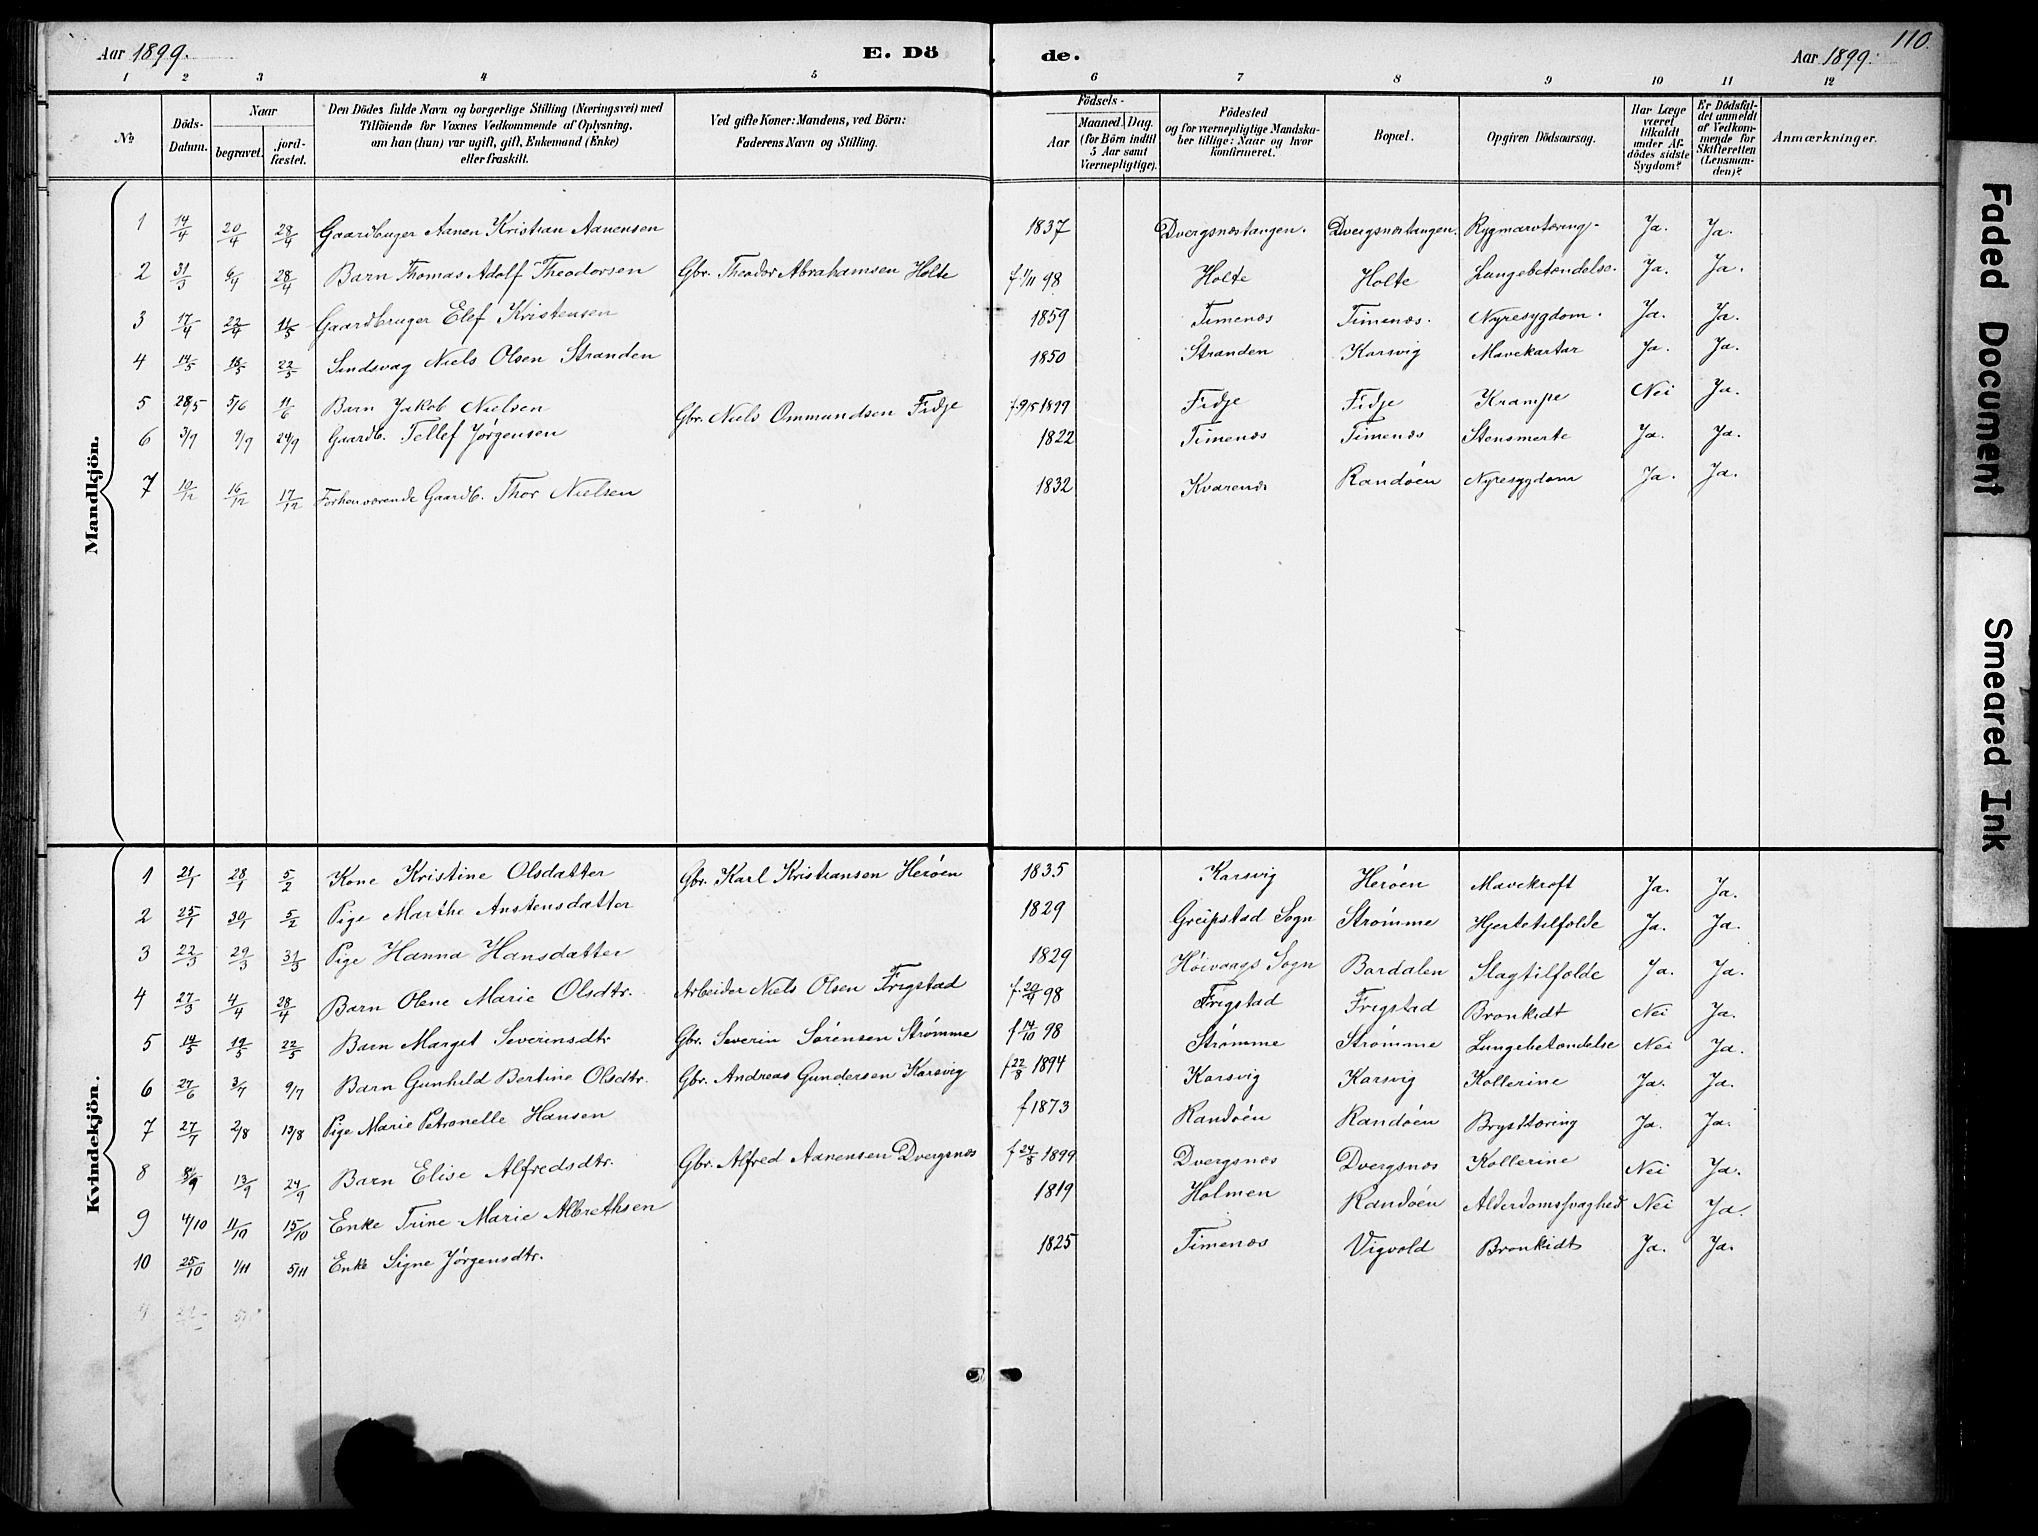 110.
Aar 1899. E. Dö de. Aar 1899.
1 2 3 4 5 6 7 8 9 10 11 12
No. Döds-Datum. Naar begravet. jordfæstet. Den Dödes fulde Navn og borgerlige Stilling (Næringsvei) med Tilföiende for Voxnes Vedkommende af Oplysning, om han (hun) var ugift, gift, Enkemand (Enke) eller fraskilt. Ved gifte Koner: Mandens, ved Börn: Faderens Navn og Stilling. Födsels- Aar Maaned. Dag. (for Börn indtil 5 Aar samt Værnepligtige). Födested og for værnepligtige Mandskaber tillige: Naar og hvor konfirmeret. Bopæl. Opgiven Dödsaarsag. Har Læge været tilkaldt under Afdödes sidste Sygdom? Er Dödsfaldet anmeldt af Vedkommende for Skifteretten (Lensmanden)? Anmærkninger.
Mandkjön.
1 14/4 20/4 28/4 Gaardbruger Aanen Kristian Aanensen 1837 Dvergsnæstangen. Dvergsnæstangen. Rygmarvtæring. Ja. Ja.
2 31/3 6/4 28/4 Barn Thomas Adolf Theodorsen Gbr. Theodor Abrahamsen Holte f 1/11 98 Holte Holte Lungebetændelse. Ja. Ja.
3 17/4 22/4 11/5 Gaardbruger Elef Kristensen 1859 Timenæs Timenæs. Nyresygdom. Ja. Ja.
4 14/5 18/5 22/5 Sindsvag Niels Olsen Stranden 1850 Stranden Korsvig Mavekartar Ja. Ja.
5 28/5 5/6 11/6 Barn Jakob Nielsen Gbr. Niels Ommundsen Fidje f. 9/5 1899 Fidje Fidje Krampe Nei Ja.
6 3/9 9/9 24/9 Gaardb. Tellef Jørgensen 1822 Timenæs Timenæs Stensmerte Ja. Ja.
7 10/12 16/12 17/12 Forhenværende Gaardb. Thor Nielsen 1832 Kvarenæs Randøen Nyresygdom Ja. Ja.
Kvindekjön.
1 21/1 28/1 5/2 Kone Kristine Olsdatter Gbr. Karl Kristiansen Herøen 1835 Korsvig Herøen Mavekræft Ja. Ja.
2 25/1 30/1 5/2 Pige Marthe Anstensdatter 1829 Greipstad Sogn Strømme Hjertetilfælde Ja. Ja.
3 22/3 29/3 31/3 Pige Hanna Hansdatter 1829 Høivaags Sogn Bordalen Slagtilfælde Ja. Ja.
4 27/3 4/4 28/4 Barn Olene Marie Olsdtr. Arbeider Niels Olsen Frigstad f. 20/4 98 Frigstad Frigstad Bronkidt Nei Ja.
5 14/5 19/5 22/5 Barn Marget Severinsdtr Gbr. Severin Sørensen Strømme f 14/10 98 Strømme Strømme Lungebetændelse Nei Ja.
6 27/6 3/7 9/7 Barn Gunhild Bertine Olsdtr. Gbr. Andreas Gundersen Korsvig f 22/8 1894 Korsvig Korsvig Kollerine Ja. Ja.
7 27/7 2/8 13/8 Pige Marie Petronelle Hansen f 1873 Randøen Randøen Brysttæring Ja. Ja.
8 13/9 24/9 Barn Elise Alfredsdtr. Gbr. Alfred Aanensen Dvergsnes f 24/8 1899 Dvergsnæs Dvergsnæs Kollerine Nei Ja.
9 4/10 11/10 15/10 Enke Trine Marie Albrethsen 1819 Holmen Randøen Alderdomssvaghed Nei Ja.
10 25/10 1/11 5/11 Enke Signe Jørgensdtr. 1825 Timenæs Vigvold Bronkidt Ja. Ja.
Faded Document
Smeared Ink